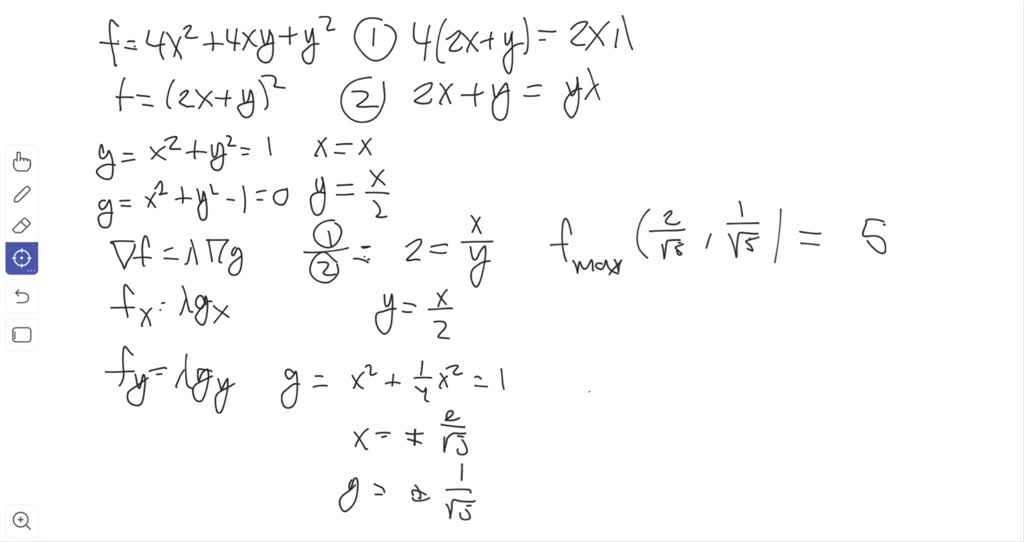 f = 4x² + 4xy + y² ① 4(2x+y) = 2xλ
f = (2x+y)² ② 2x+y = yλ
g = x² + y² = 1 x = x
g = x² + y² - 1 = 0 y = x/2
∇f = λ∇g ①/② = 2 = x/y f max (2/√5, 1/√5) = 5
fx = λgx y = x/2
fy = λgy g = x² + 1/4 x² = 1
x = ± 2/√5
y = ± 1/√5